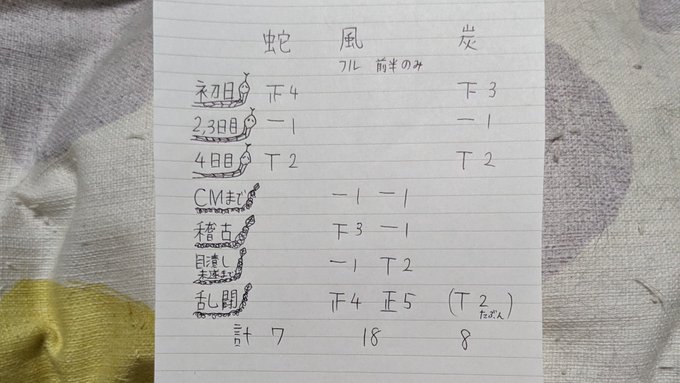 蛇 風 炭
フル 前半のみ
初日 正4 下3
2,3日目 一1 一1
4日目 丅2 丅2
CMまで 一1 一1
稽古 下3 一1
目潰し 一1 丅2
未遂まで
乱闘 正4 正5 (丅2 たぶん)
計 7 18 8